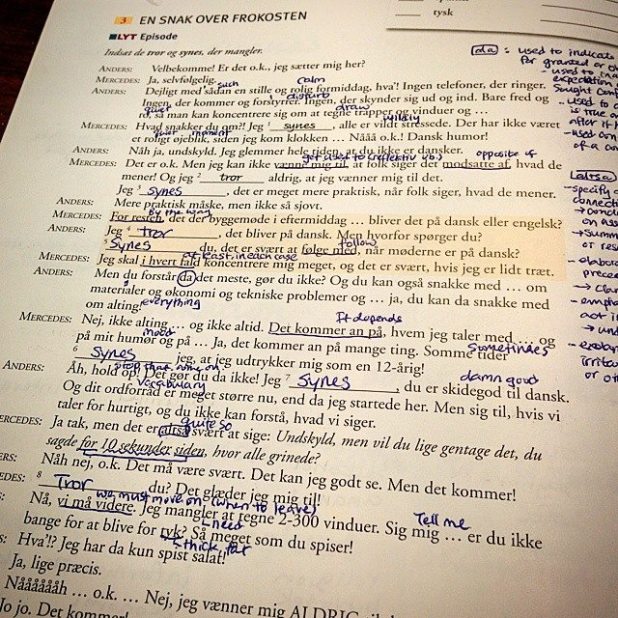 tysk
3 EN SNAK OVER FROKOSTEN
LYT Episode
Indsæt de tror og synes, der mangler.
ANDERS: Velbekomme! Er det o.k., jeg sætter mig her?
MERCEDES: Ja, selvfølgelig.
such calm
ANDERS: Dejligt med sådan en stille og rolig formiddag, hva'! Ingen telefoner, der ringer.
disturb
Ingen, der kommer og forstyrrer. Ingen, der skynder sig ud og ind. Bare fred og
quiet draw
ro, så man kan koncentrere sig om at tegne trapper og vinduer og …
wildly
MERCEDES: Hvad snakker du om?! Jeg synes, alle er vildt stressede. Der har ikke været
quiet moment
et roligt øjeblik, siden jeg kom klokken … Nååå o.k.! Dansk humor!
ANDERS: Näh ja, undskyld. Jeg glemmer hele tiden, at du ikke er dansker.
get used to (reflektiv vb.) opposite of
MERCEDES: Det er o.k. Men jeg kan ikke vænne mig til, at folk siger det modsatte af, hvad de
mener! Og jeg 2 tror aldrig, at jeg vænner mig til det.
Jeg 3 synes, det er meget mere praktisk, når folk siger, hvad de mener.
ANDERS: Mere praktisk måske, men ikke så sjovt.
by the way
MERCEDES: For resten, det der byggemøde i eftermiddag … bliver det på dansk eller engelsk?
ANDERS: Jeg 4 tror, det bliver på dansk. Men hvorfor spørger du?
follow
5 Synes du, det er svært at følge med, når møderne er på dansk?
at least, in each case
MERCEDES: Jeg skal i hvert fald koncentrere mig meget, og det er svært, hvis jeg er lidt træt.
ANDERS: Men du forstår da det meste, gør du ikke? Og du kan også snakke med … om
materialer og økonomi og tekniske problemer og … ja, du kan da snakke med
om alting!
everything
It depends
MERCEDES: Nej, ikke alting … og ikke altid. Det kommer an på, hvem jeg taler med … og
mood Sometimes
på mit humør og på … Ja, det kommer an på mange ting. Somme tider
6 Synes jeg, at jeg udtrykker mig som en 12-årig!
stop that, come on damn good
ANDERS: Åh, hold op! Det gør du da ikke! Jeg 7 Synes, du er skidegod til dansk.
vocabulary
Og dit ordforråd er meget større nu, end da jeg startede her. Men sig til, hvis vi
taler for hurtigt, og du ikke kan forstå, hvad vi siger.
quite so
MERCEDES: Ja tak, men det er altså svært at sige: Undskyld, men vil du lige gentage det, du
sagde for 10 sekunder siden, hvor alle grinede?
ANDERS: Nåh nej, o.k. Det må være svært. Det kan jeg godt se. Men det kommer!
MERCEDES: 8 Tror du? Det glæder jeg mig til!
we must move on (when to leave) Tell me
Nå, vi må videre. Jeg mangler at tegne 2-300 vinduer. Sig mig … er du ikke
need
bange for at blive for tyk? Så meget som du spiser!
thick, fat
Hva'!? Jeg har da kun spist salat!
Ja, lige præcis.
Nååååååh … o.k. … Nej, jeg vænner mig ALDRIG
Jo jo. Det kommer!
da: used to indicate
for granted or
- used to
expectation
- used to
is true
after it
- used
of a
altså
- specify
connection
→
on
→ summ
or res
- elabora
precee
→ clar
- empha
act i
→ un